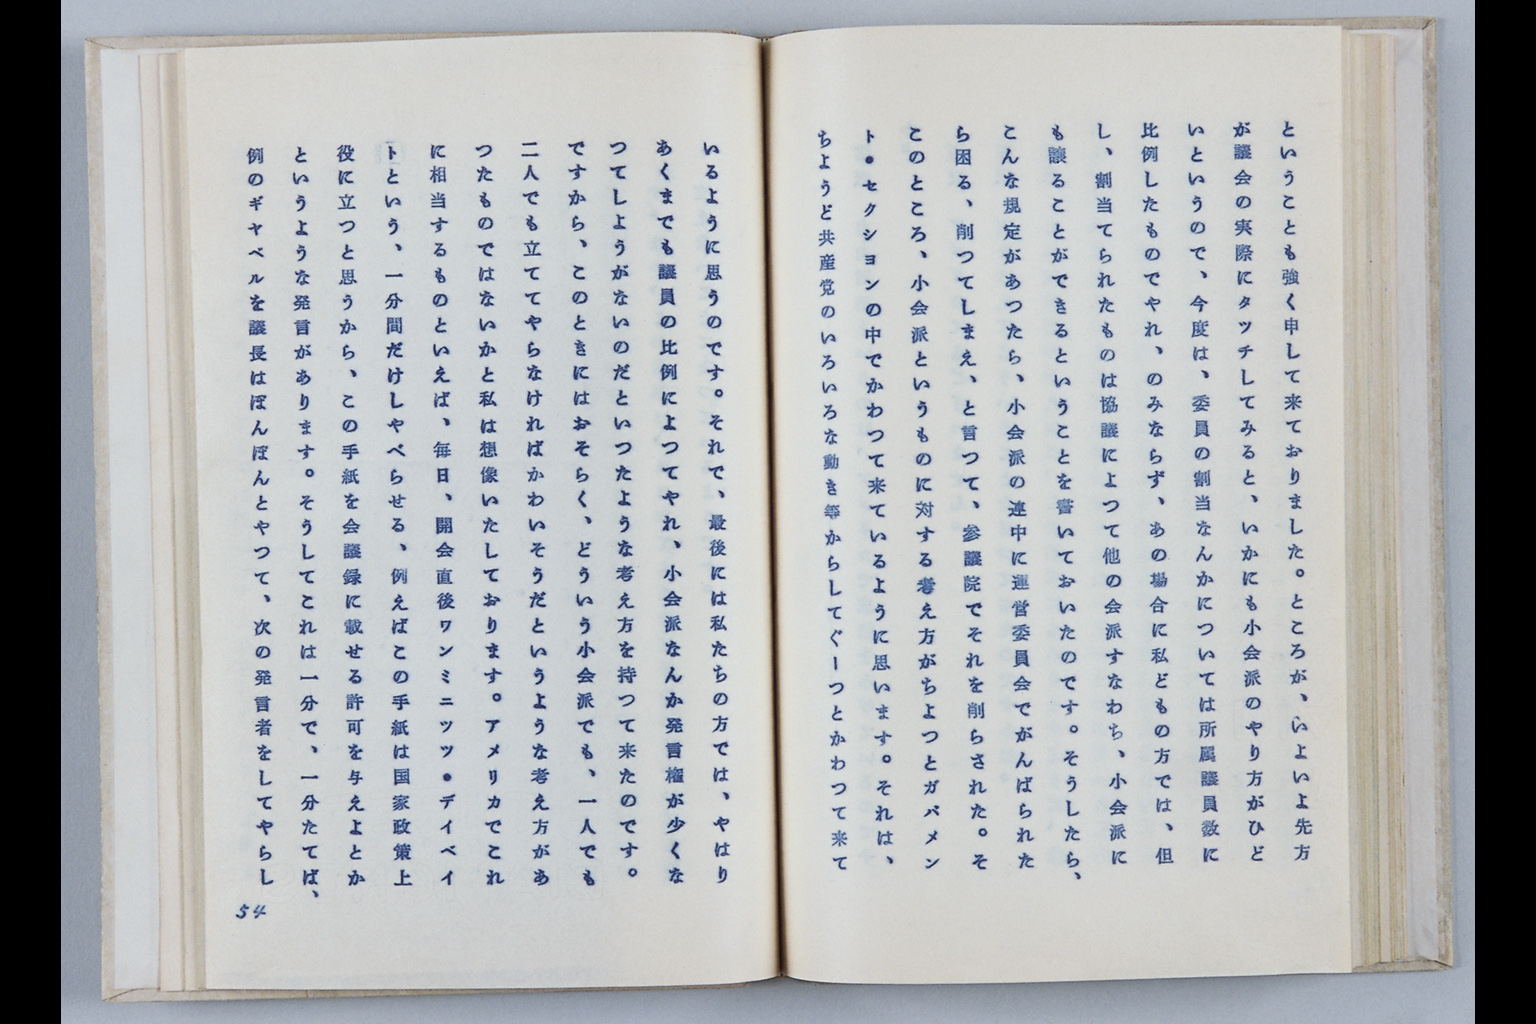 ということも強く申して来ておりました。ところが、いよいよ先方
が議会の実際にタツチしてみると、いかにも小会派のやり方がひど
いというので、今度は、委員の割当なんかについては所属議員数に
比例したものでやれ、のみならず、あの場合に私どもの方では、但
し、割当てられたものは協議によつて他の会派すなわち、小会派に
も譲ることができるということを書いておいたのです。そうしたら、
こんな規定があつたら、小会派の連中に運営委員会でがんばられた
ら困る、削つてしまえ、と言つて、参議院でそれを削らされた。そ
このところ、小会派というものに対する考え方がちよつとガバメン
ト・セクシヨンの中でかわつて来ているように思います。それは、
ちようど共産党のいろいろな動き等からしてぐーつとかわつて来て
いるように思うのです。それで、最後には私たちの方では、やはり
あくまでも議員の比例によつてやれ、小会派なんか発言権が少くな
つてしようがないのだといつたような考え方を持つて来たのです。
ですから、このときにはおそらく、どういう小会派でも、一人でも
二人でも立ててやらなければかわいそうだというような考え方があ
つたものではないかと私は想像いたしております。アメリカでこれ
に相当するものといえば、毎日、開会直後ワンミニツツ・デイベイ
トという、一分間だけしやべらせる、例えばこの手紙は国家政策上
役に立つと思うから、この手紙を会議録に載せる許可を与えよとか
というような発言があります。そうしてこれは一分で、一分たてば、
例のギヤベルを議長はぽんぽんとやつて、次の発言者をしてやらし
54